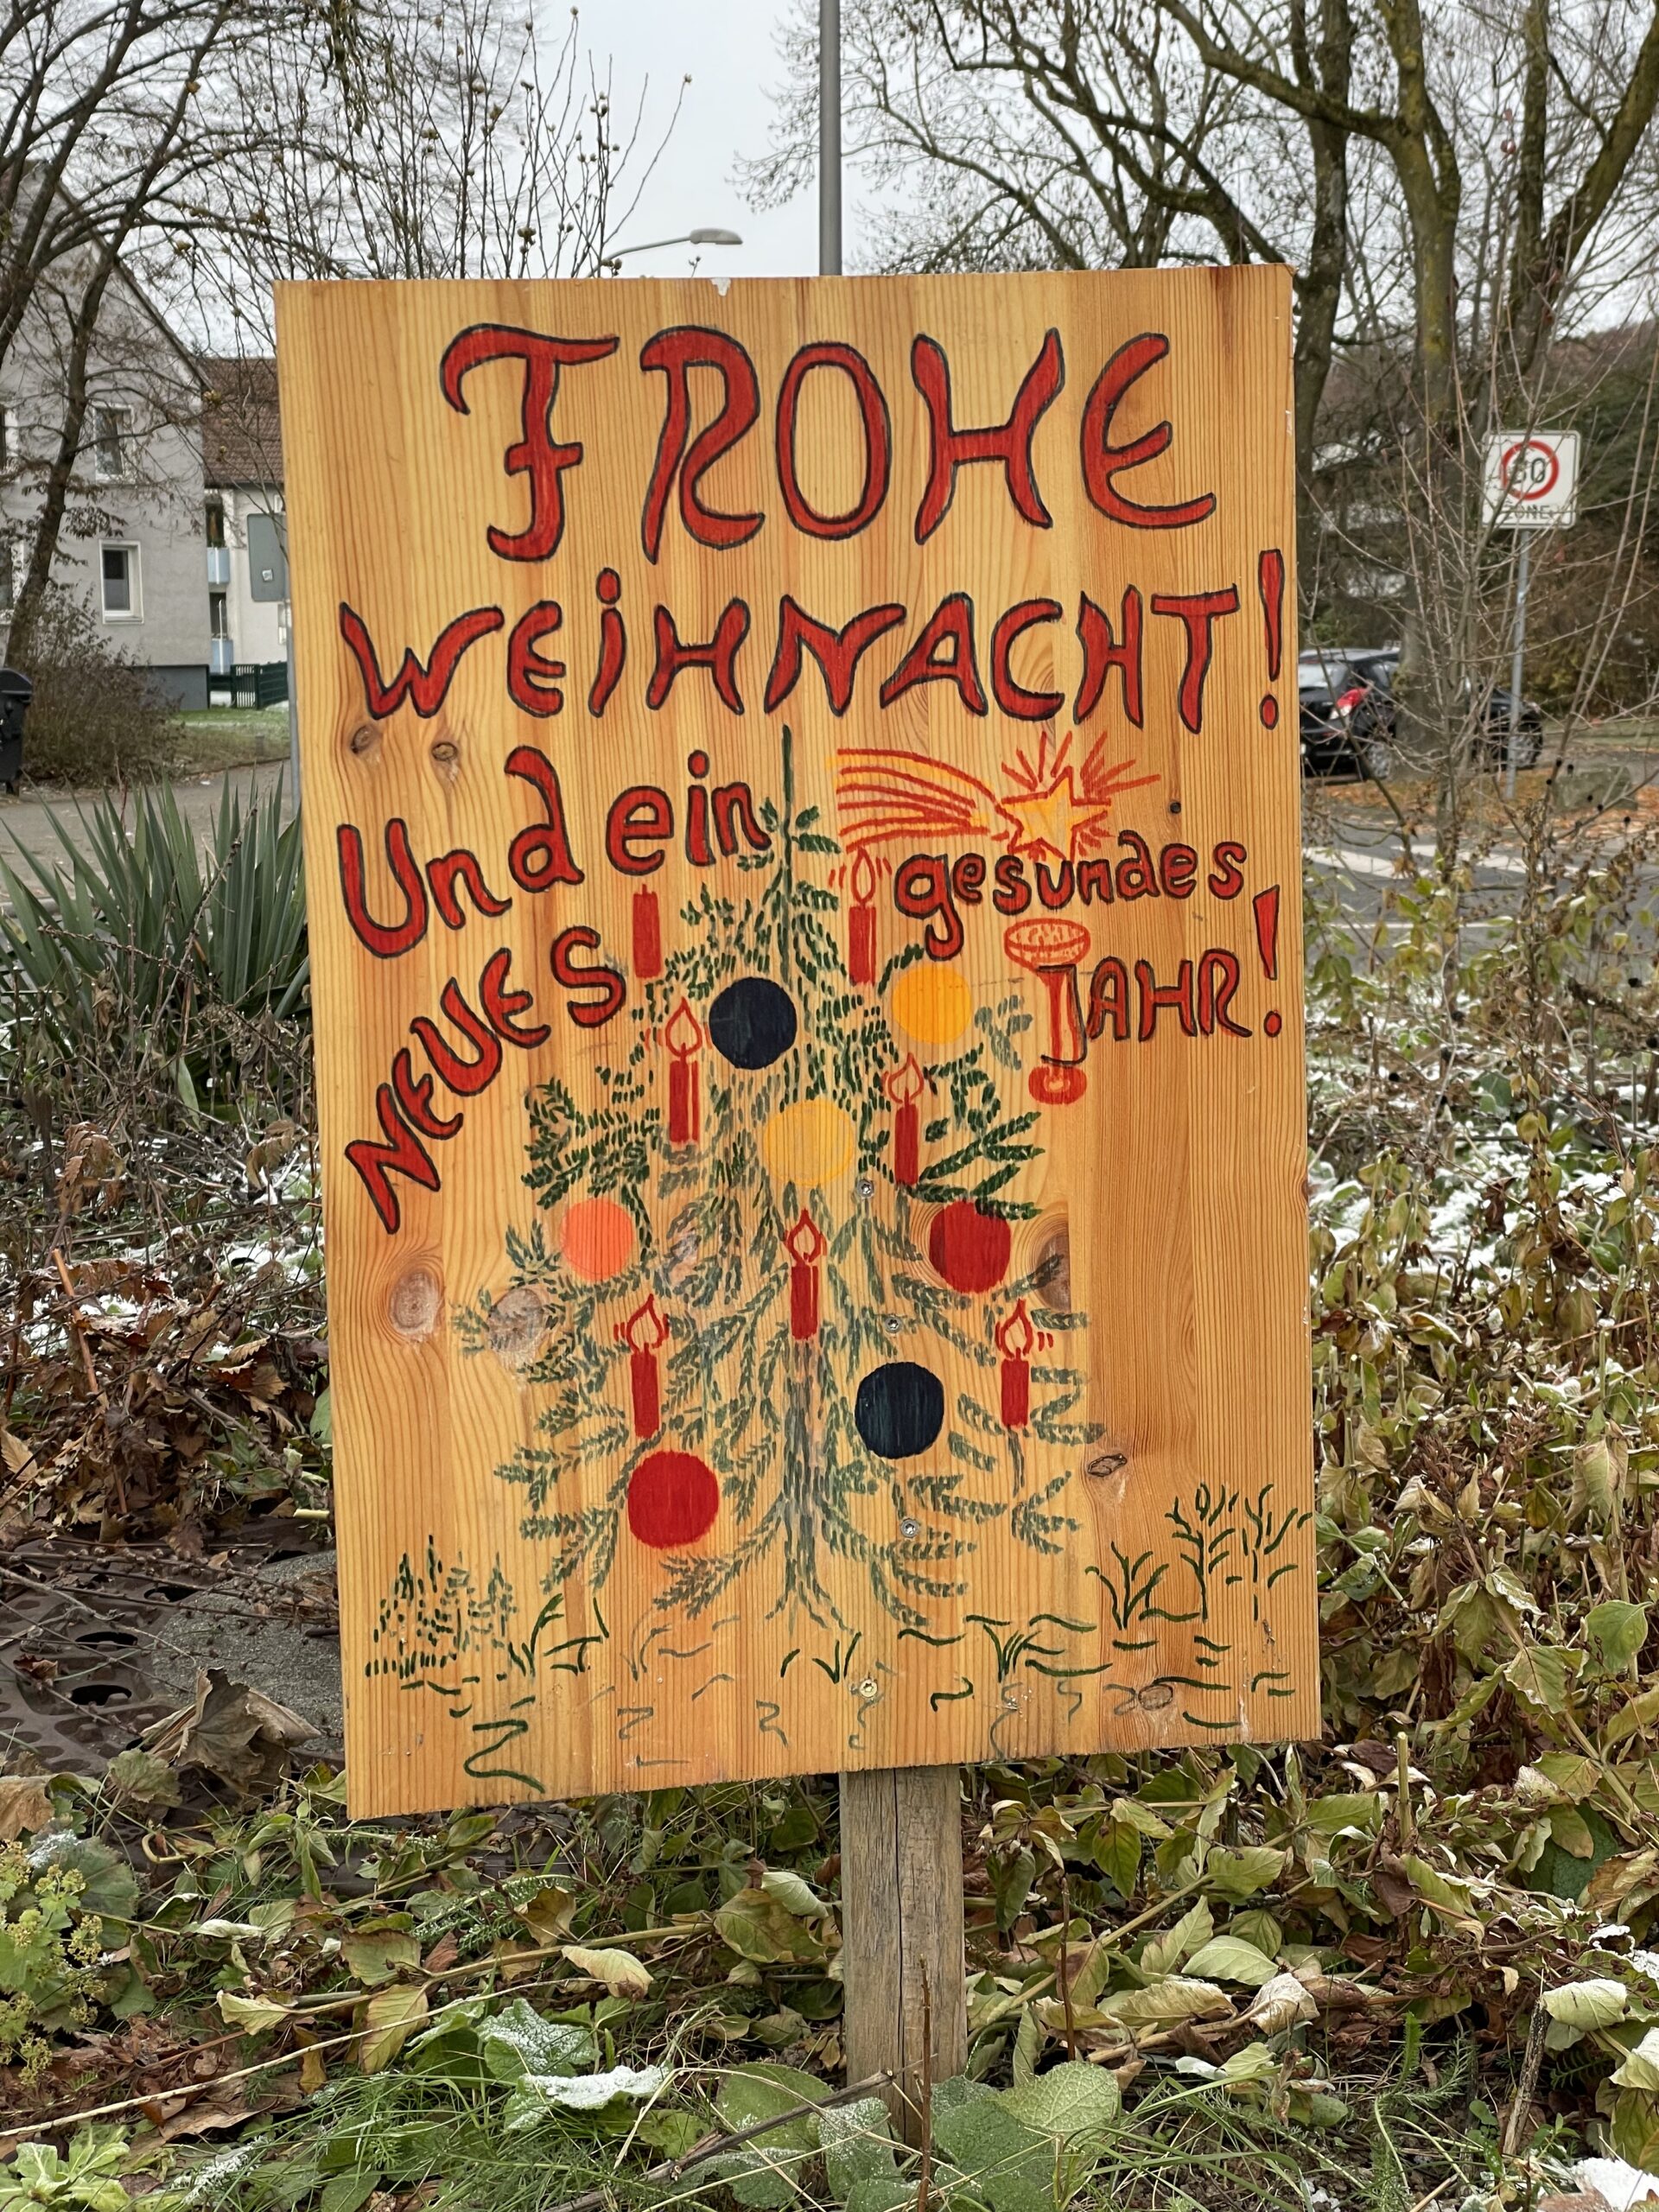 FROHE
WEiHNACHT!
Und ein gesundes
NEUES JAHR!
30
ZONE